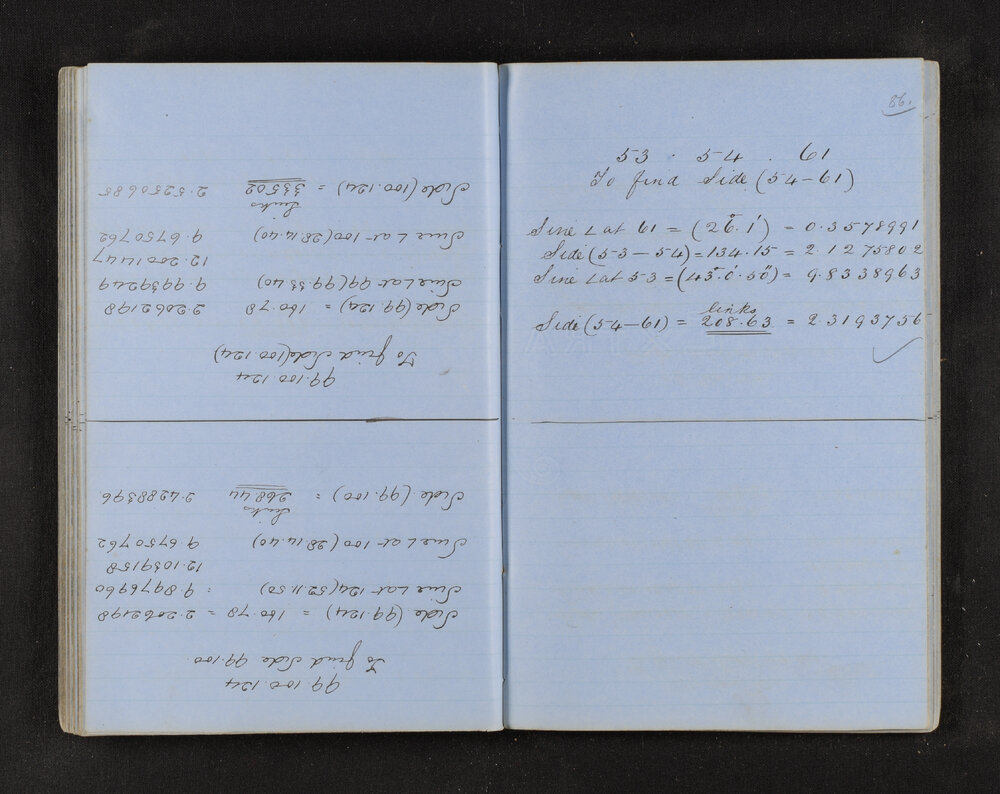 99.100.124
To find Side 99.100.
Side (99.124) = 160.78 = 2.2062198
Sine ∠ at 124 (52.11.50) : 9.8976960
12.1039158
Sine ∠ at 100 (28.14.40) 9.6750762
Links
Side (99.100) = 268.44 2.4288396
99.100.124
To find Side (100.124)
Side (99.124) = 160.78 2.2062198
Sine ∠ at 99 (99.33.40) 9.9939249
12.2001447
Sine ∠ at 100 (28.14.40) 9.6750762
Links
Side (100.124) = 33502 2.5250685
86.
53 . 54 . 61
To find Side (54-61)
Sine ∠ at 61 = (26°.1') = 0.3578991
Side (53-54) = 134.15 = 2.1275802
Sine ∠ at 53 = (43°.0'.50") = 9.8338963
links
Side (54-61) = 208.63 = 2.3193756